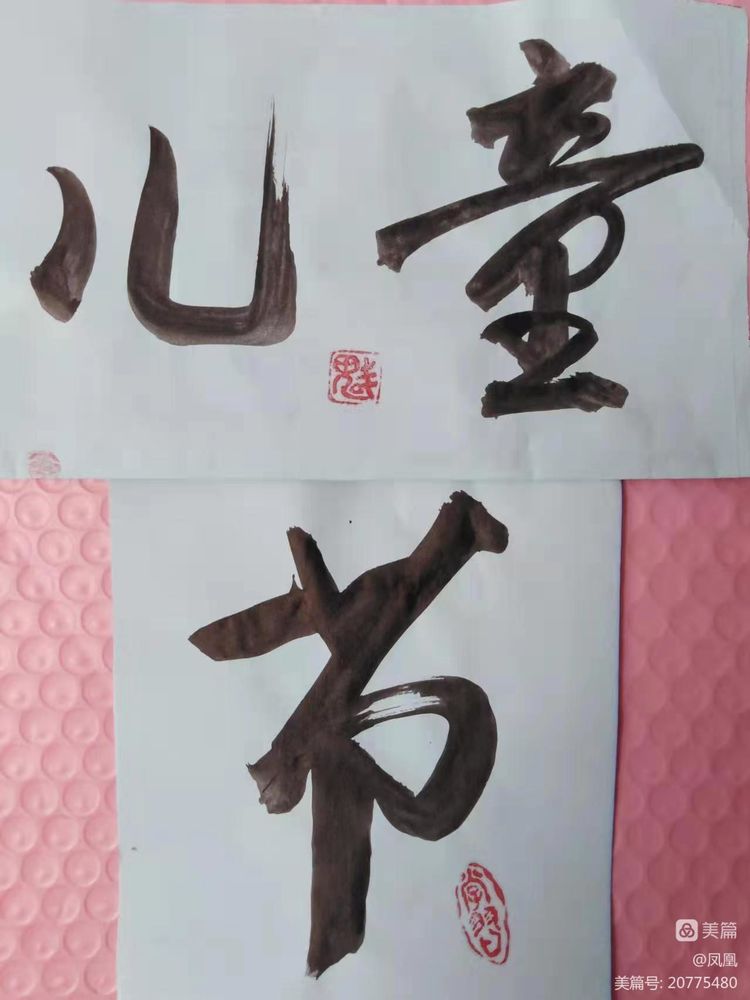 儿童
节
美篇
@凤凰
美篇号: 20775480